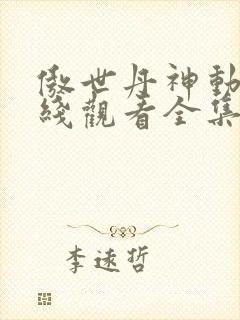 傲世丹神動
綫觀看全集
李遠哲